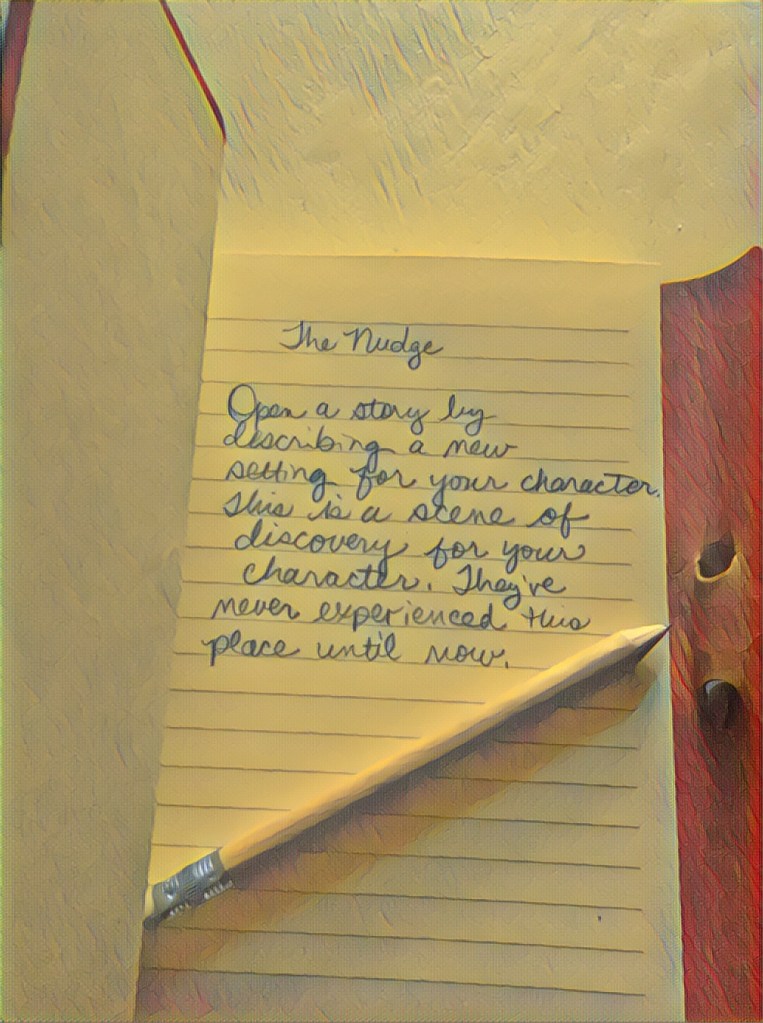 The Nudge
Open a story by
describing a new
setting for your character.
This is a scene of
discovery for your
character. They've
never experienced this
place until now.